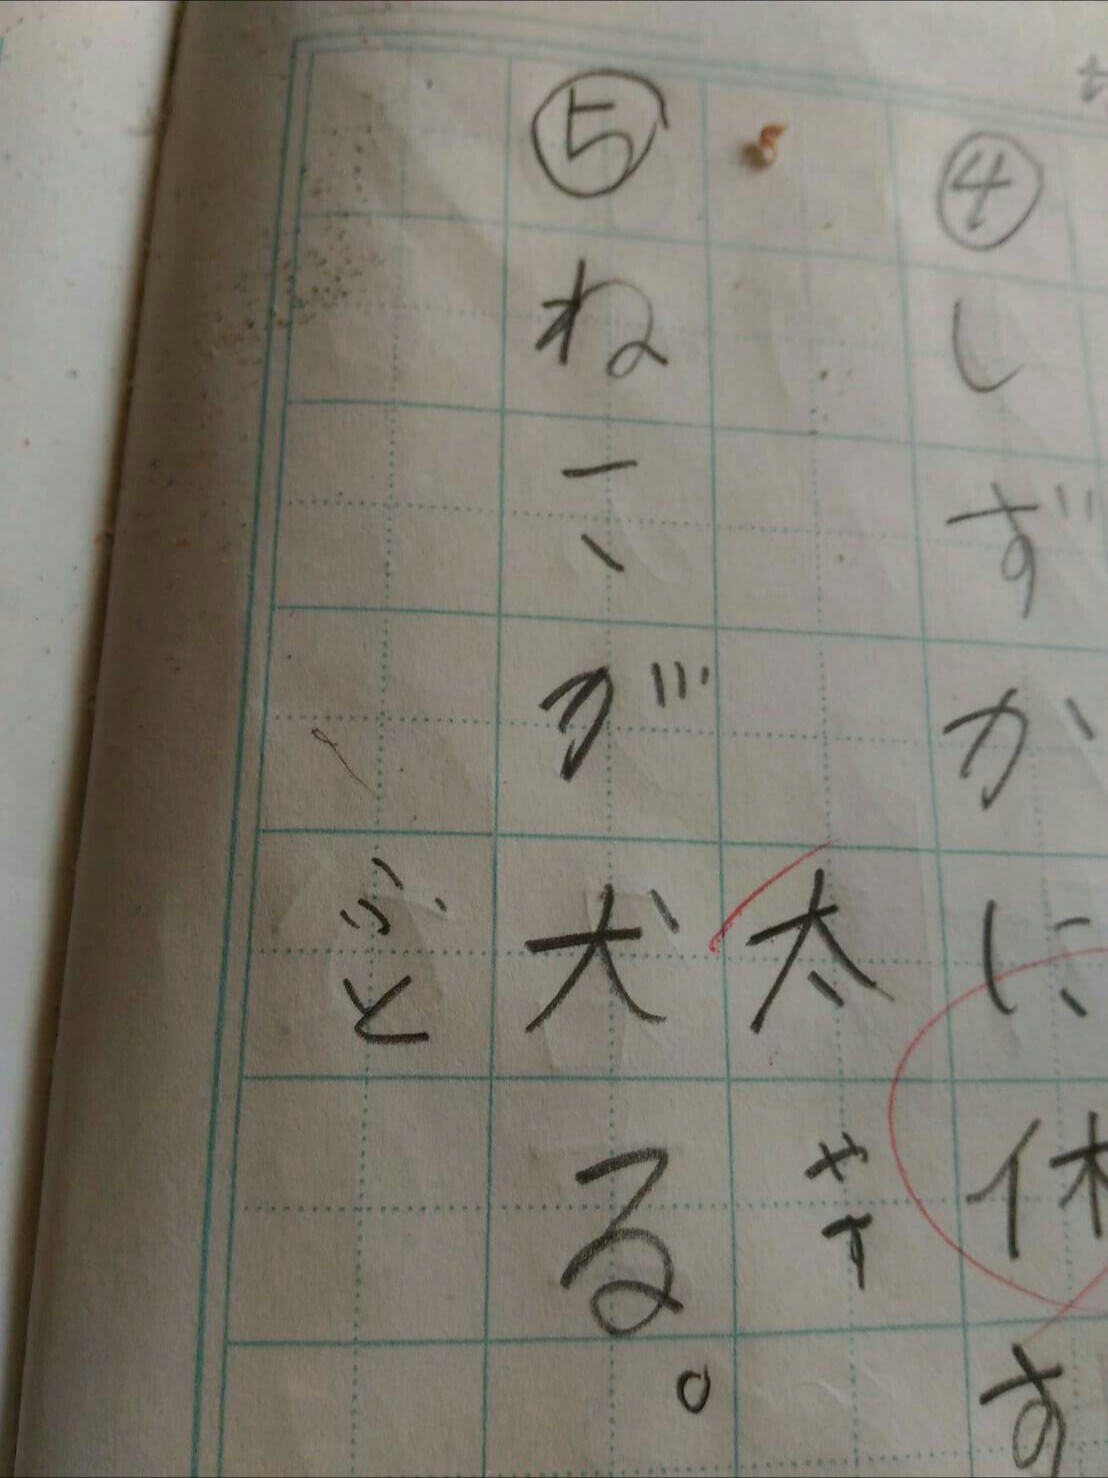 ④しずかに休す
太
やす
⑤ねこが犬る。
ふと